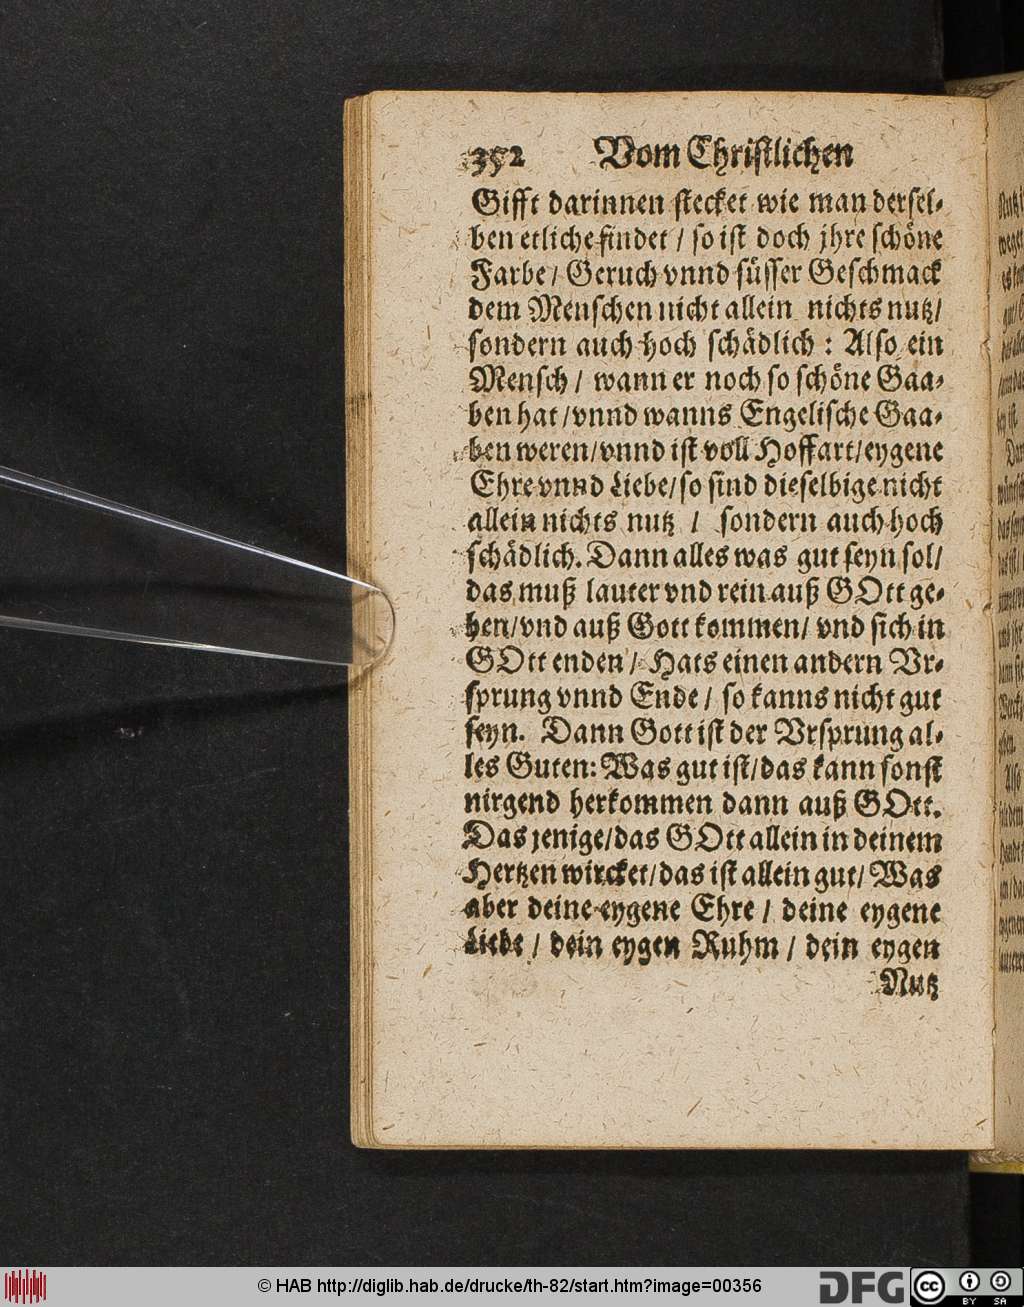 352 Vom Christlichen
Gifft darinnen stecket wie man dersel-
ben etliche findet / so ist doch jhre schöne
Farbe / Geruch vnnd süsser Geschmack
dem Menschen nicht allein nichts nutz /
sondern auch hoch schädlich : Also ein
Mensch / wann er noch so schöne Gaa-
ben hat / vnnd wanns Engelische Gaa-
ben weren / vnnd ist voll Hoffart / eygene
Ehre vnnd Liebe / so sind dieselbige nicht
allein nichts nutz / sondern auch hoch
schädlich. Dann alles was gut seyn sol /
das muß lauter vnd rein auß GOtt ge-
hen / vnd auß Gott kommen / vnd sich in
GOtt enden / Hats einen andern Vr-
sprung vnnd Ende / so kanns nicht gut
seyn. Dann Gott ist der Vrsprung al-
les Guten: Was gut ist / das kann sonst
nirgend herkommen dann auß GOtt.
Das jenige / das GOtt allein in deinem
Hertzen wircket / das ist allein gut / Was
aber deine eygene Ehre / deine eygene
Liebe / dein eygen Ruhm / dein eygen
Nutz
© HAB http://diglib.hab.de/drucke/th-82/start.htm?image=00356
DFG
cc BY SA